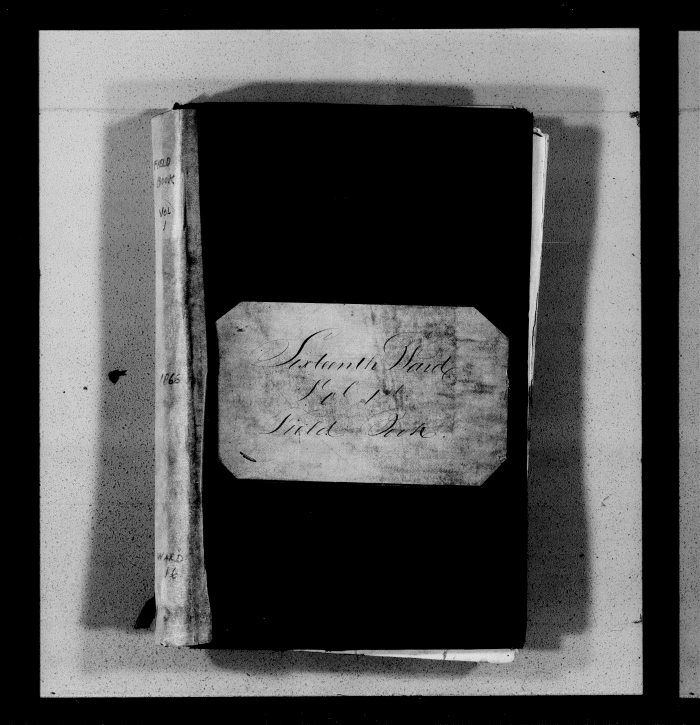 FIELD
BOOK
VOL
1
1866
WARD
16
Sixteenth Ward
Vol. 1st
Field Book.